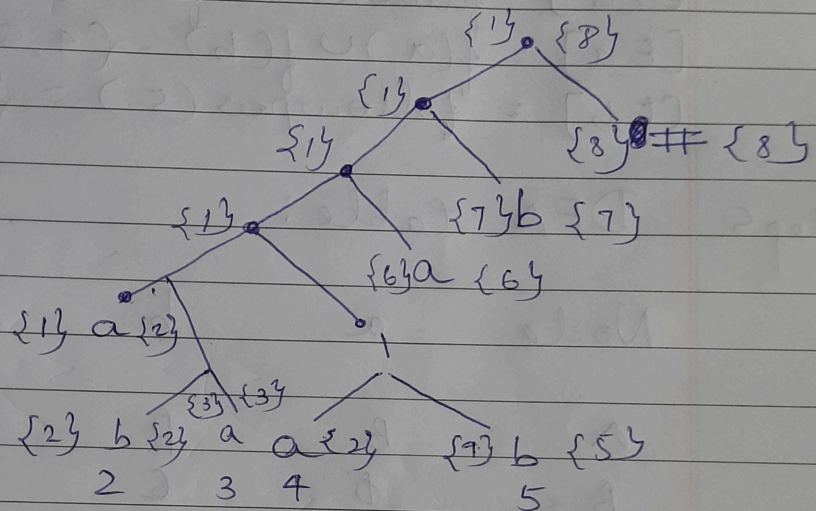 {1} {8}
{1}
{8} # {8}
{1}
{7} b {7}
{1}
{6} a {6}
{1} a {2}
{3} {3}
{2} b {2} a a {2} {9} b {5}
2 3 4 5